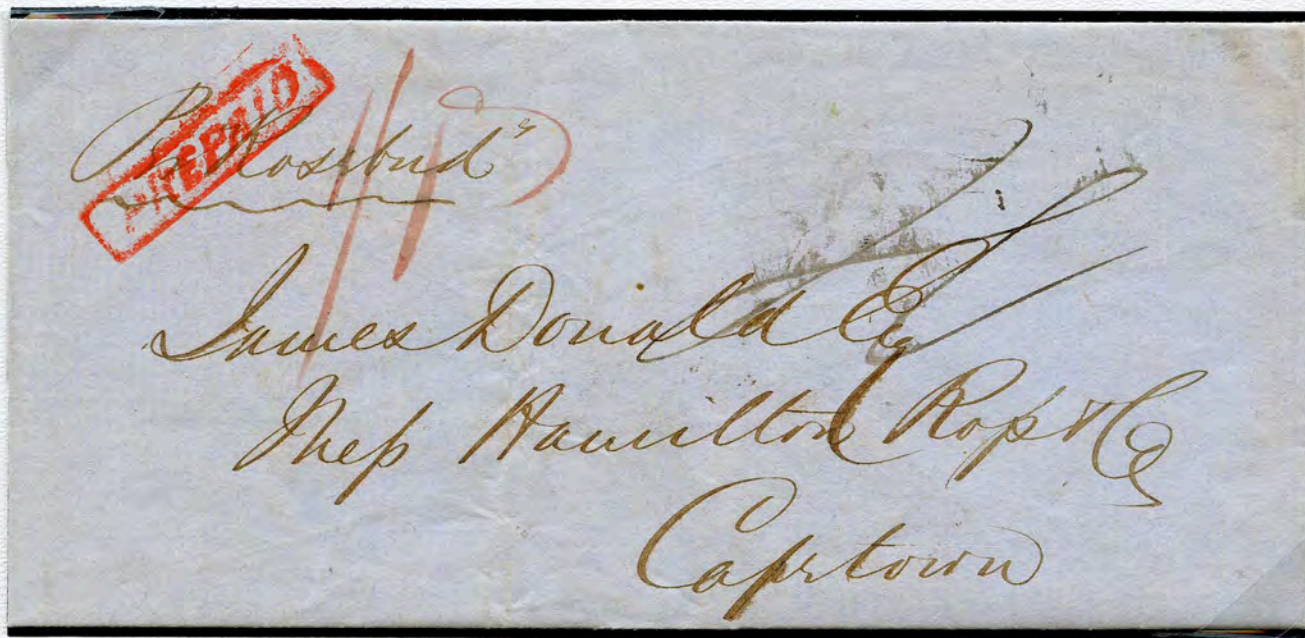 PREPAID
Pr "Rosebud"
James Donald Esq
Mess Hamilton Ross & Co
Capetown